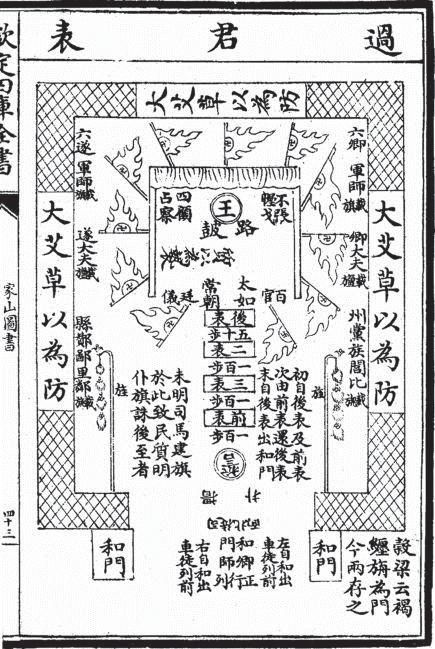 過君表
大艾草以為防
大艾草以為防
大艾草以為防
六卿
軍師
卿大夫
州黨族閭比
六遂
軍師
遂大夫
縣鄙鄼里鄰
不張
四顧
占察
王
路
鼓
太常
如朝
百官
廷儀
後表
五十步
二表
一百步
三表
一百步
前表
一百步
初自後表及前表
次由前表還後表
末自後表出和門
未明司馬建旗
於此致民質明
仆旗誅後至者
和門
和門
左自和出
車徒列前
和卿正
門師行列
右自和出
車徒列前
穀梁云褐
纏旃為門
今兩存之
欽定四庫全書
家山圖書
四十三